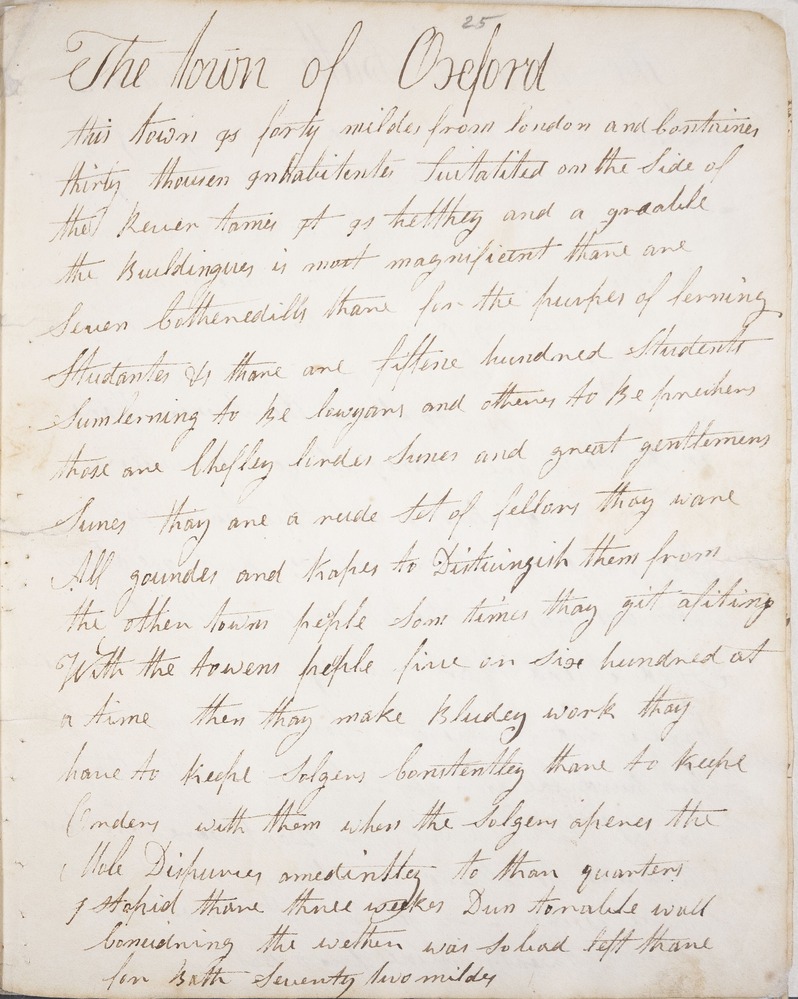 25
The town of Oxeford
this town is forty mildes from london and Contains
thirty thousen inhabitentes Suitatited on the Side of
the Rever tames it is helthey and a greable
the Buildingues is most magnificent thare are
Seven Cothenedills thare for the purpes of lerning
Studantes & thare are fiftene hundred Students
Sum lerning to be lawyars and others to Be preichers
those are Chefley lordes Sunes and great gentlemens
Sunes thay are a rude Set of fellows thay ware
All goundes and kapes to Distuingish them from
the other towns peple Som times thay git afiting
With the towens peple five or six hundred at
a time then thay make Bludey work thay
have to keepe Solgers Constentley thare to keepe
Orders with them when the Solgers aperes the
Hole Dispurses amedintley to thar quarters
I stopid thare three weekes Dun tonable well
Considring the wether was So bad left thare
for Bath Seventy two mildes